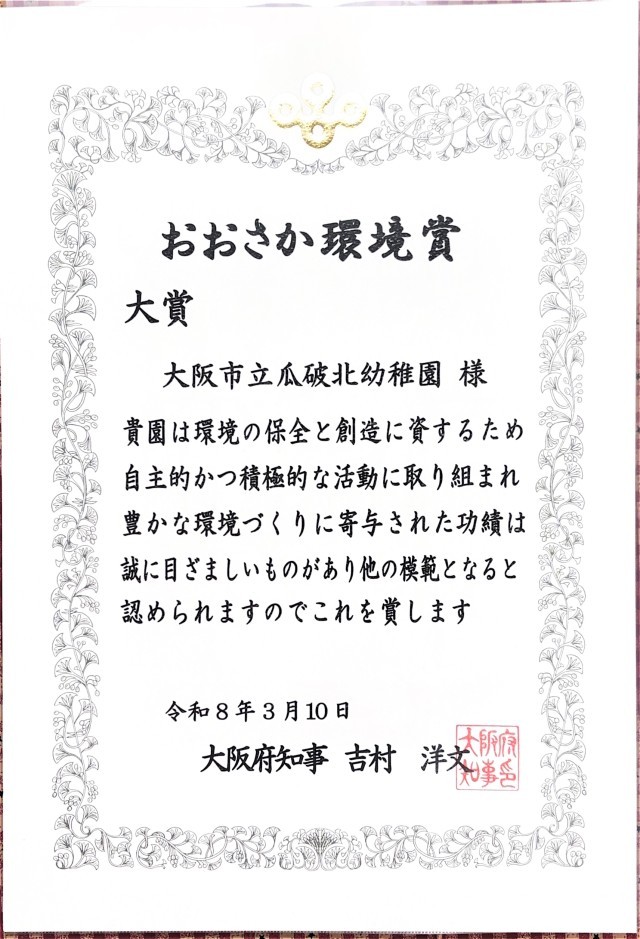 おおさか環境賞
大賞
大阪市立瓜破北幼稚園 様
貴園は環境の保全と創造に資するため
自主的かつ積極的な活動に取り組まれ
豊かな環境づくりに寄与された功績は
誠に目ざましいものがあり他の模範となると
認められますのでこれを賞します
令和8年3月10日
大阪府知事 吉村 洋文
大阪府
知事印